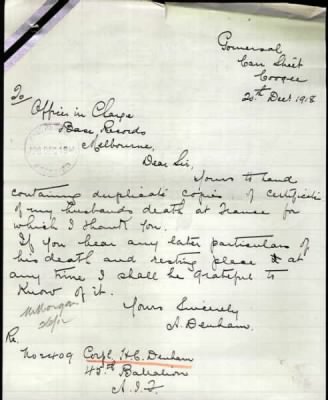 Gomersal
Carr Street
Coogee
20th Dec. 1918
To
Officer in Charge
Base Records
Melbourne,
Dear Sir,
Yours to hand
containing duplicate copies of certificate
of my husbands death at France for
which I thank you.
If you hear any later particulars of
his death and resting place at
any time I shall be grateful to
know of it.
Yours Sincerely
A. Denham.
Re.
No 2409 Corpl. H.C. Denham
45th Battalion
A.I.F.